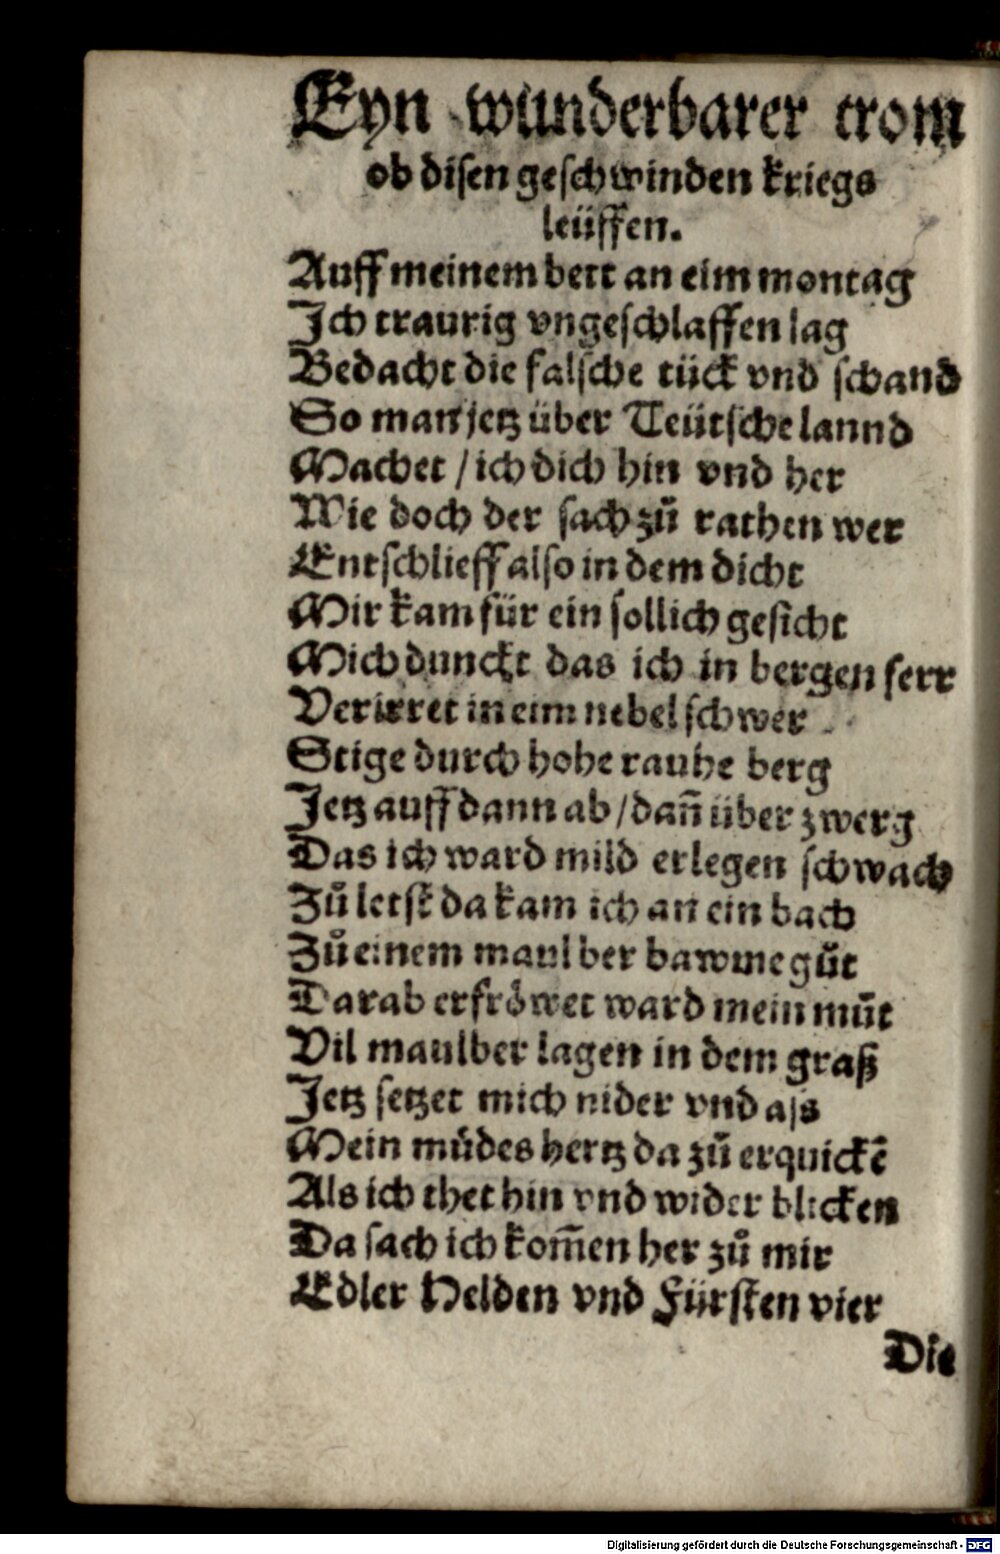 Eyn wunderbarer trom
ob disen geschwinden kriegs
leüffen.
Auff meinem bett an eim montag
Ich traurig vngeschlaffen lag
Bedacht die falsche tück vnd schand
So man jetz über Teütsche lannd
Machet / ich dich hin vnd her
Wie doch der sach zů rathen wer
Entschlieff also in dem dicht
Mir kam für ein sollich gesicht
Mich dunckt das ich in bergen ferr
Verirret in eim nebel schwer
Stige durch hohe rauhe berg
Jetz auff dann ab / dañ über zwerg
Das ich ward mild erlegen schwach
Zů letst da kam ich an ein bach
Zů einem maulber bawme gůt
Darab erfröwet ward mein můt
Vil maulber lagen in dem graß
Jetz setzet mich nider vnd ass
Mein můdes hertz da zů erquickē
Als ich thet hin vnd wider blicken
Da sach ich kom̄en her zů mir
Edler Helden vnd Fürsten vier
Die
Digitalisierung gefördert durch die Deutsche Forschungsgemeinschaft - DFG